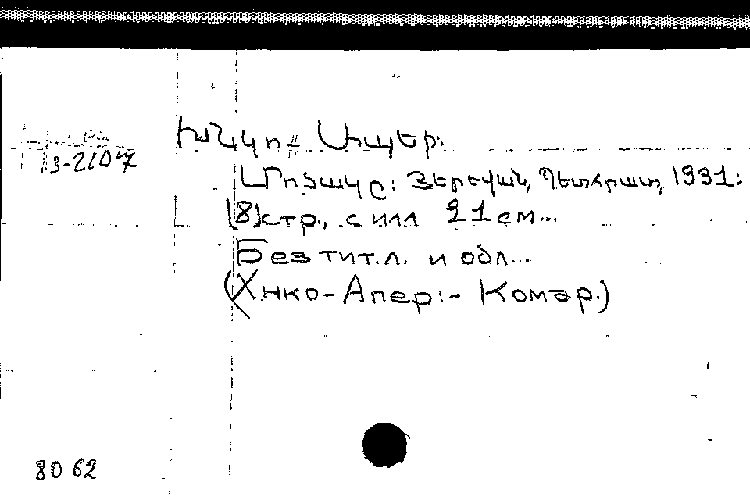 Խնկո= Ապեր.
Մոծակը: Յերեվան, Պետհրատ, 1931:
(8)стр., с илл 21 см...
Без тит.л. и обл...
(Хнко-Апер:- Комар.)
8062